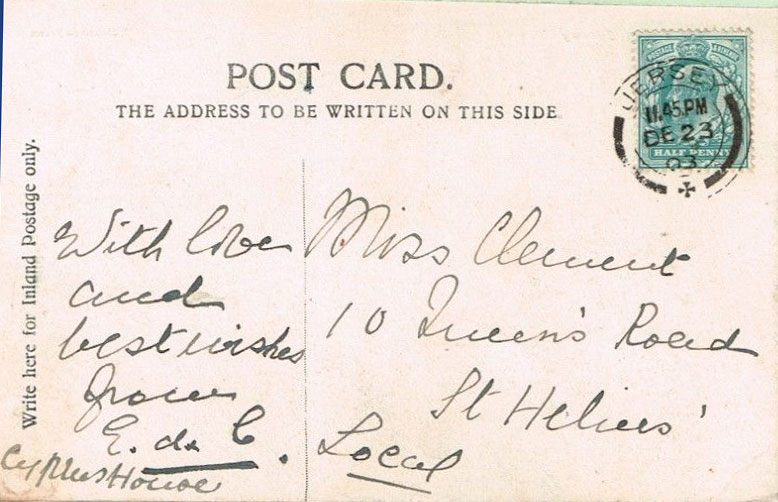 POST CARD.
THE ADDRESS TO BE WRITTEN ON THIS SIDE
Write here for Inland Postage only.
POSTAGE & REVENUE
HALF PENNY
JERSEY
11.45PM
DE 23
03
With love
and
best wishes
from
E. de C.
Cyprus House
Miss Clement
10 Queen's Road
St Heliers'
Local